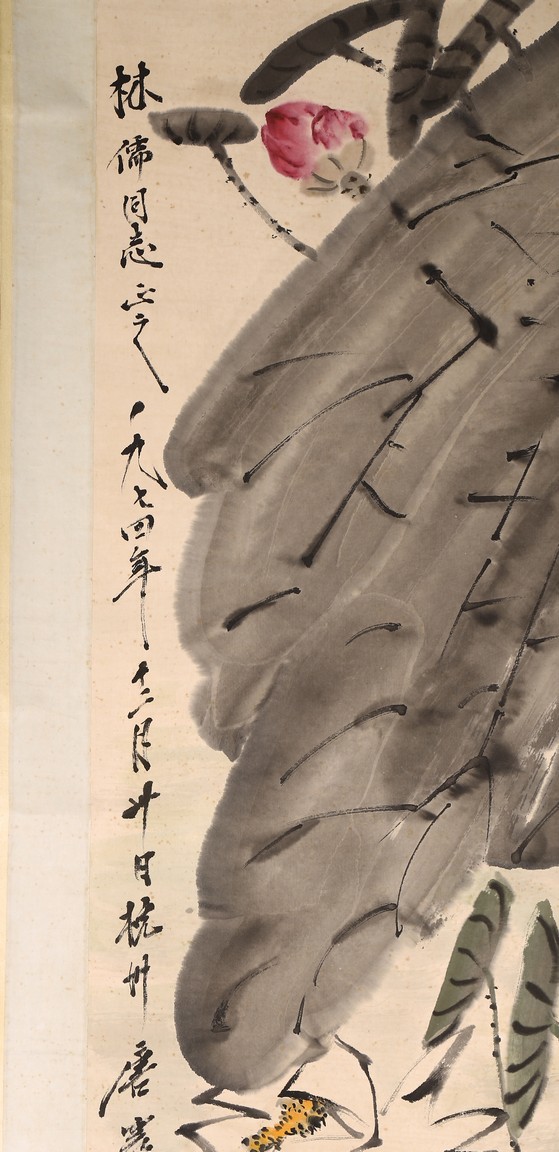 林儒同志正之
一九七四年十二月廿日杭州唐云